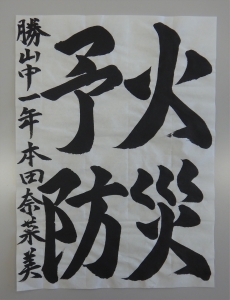 火災
予防
勝山中一年 本田奈菜美